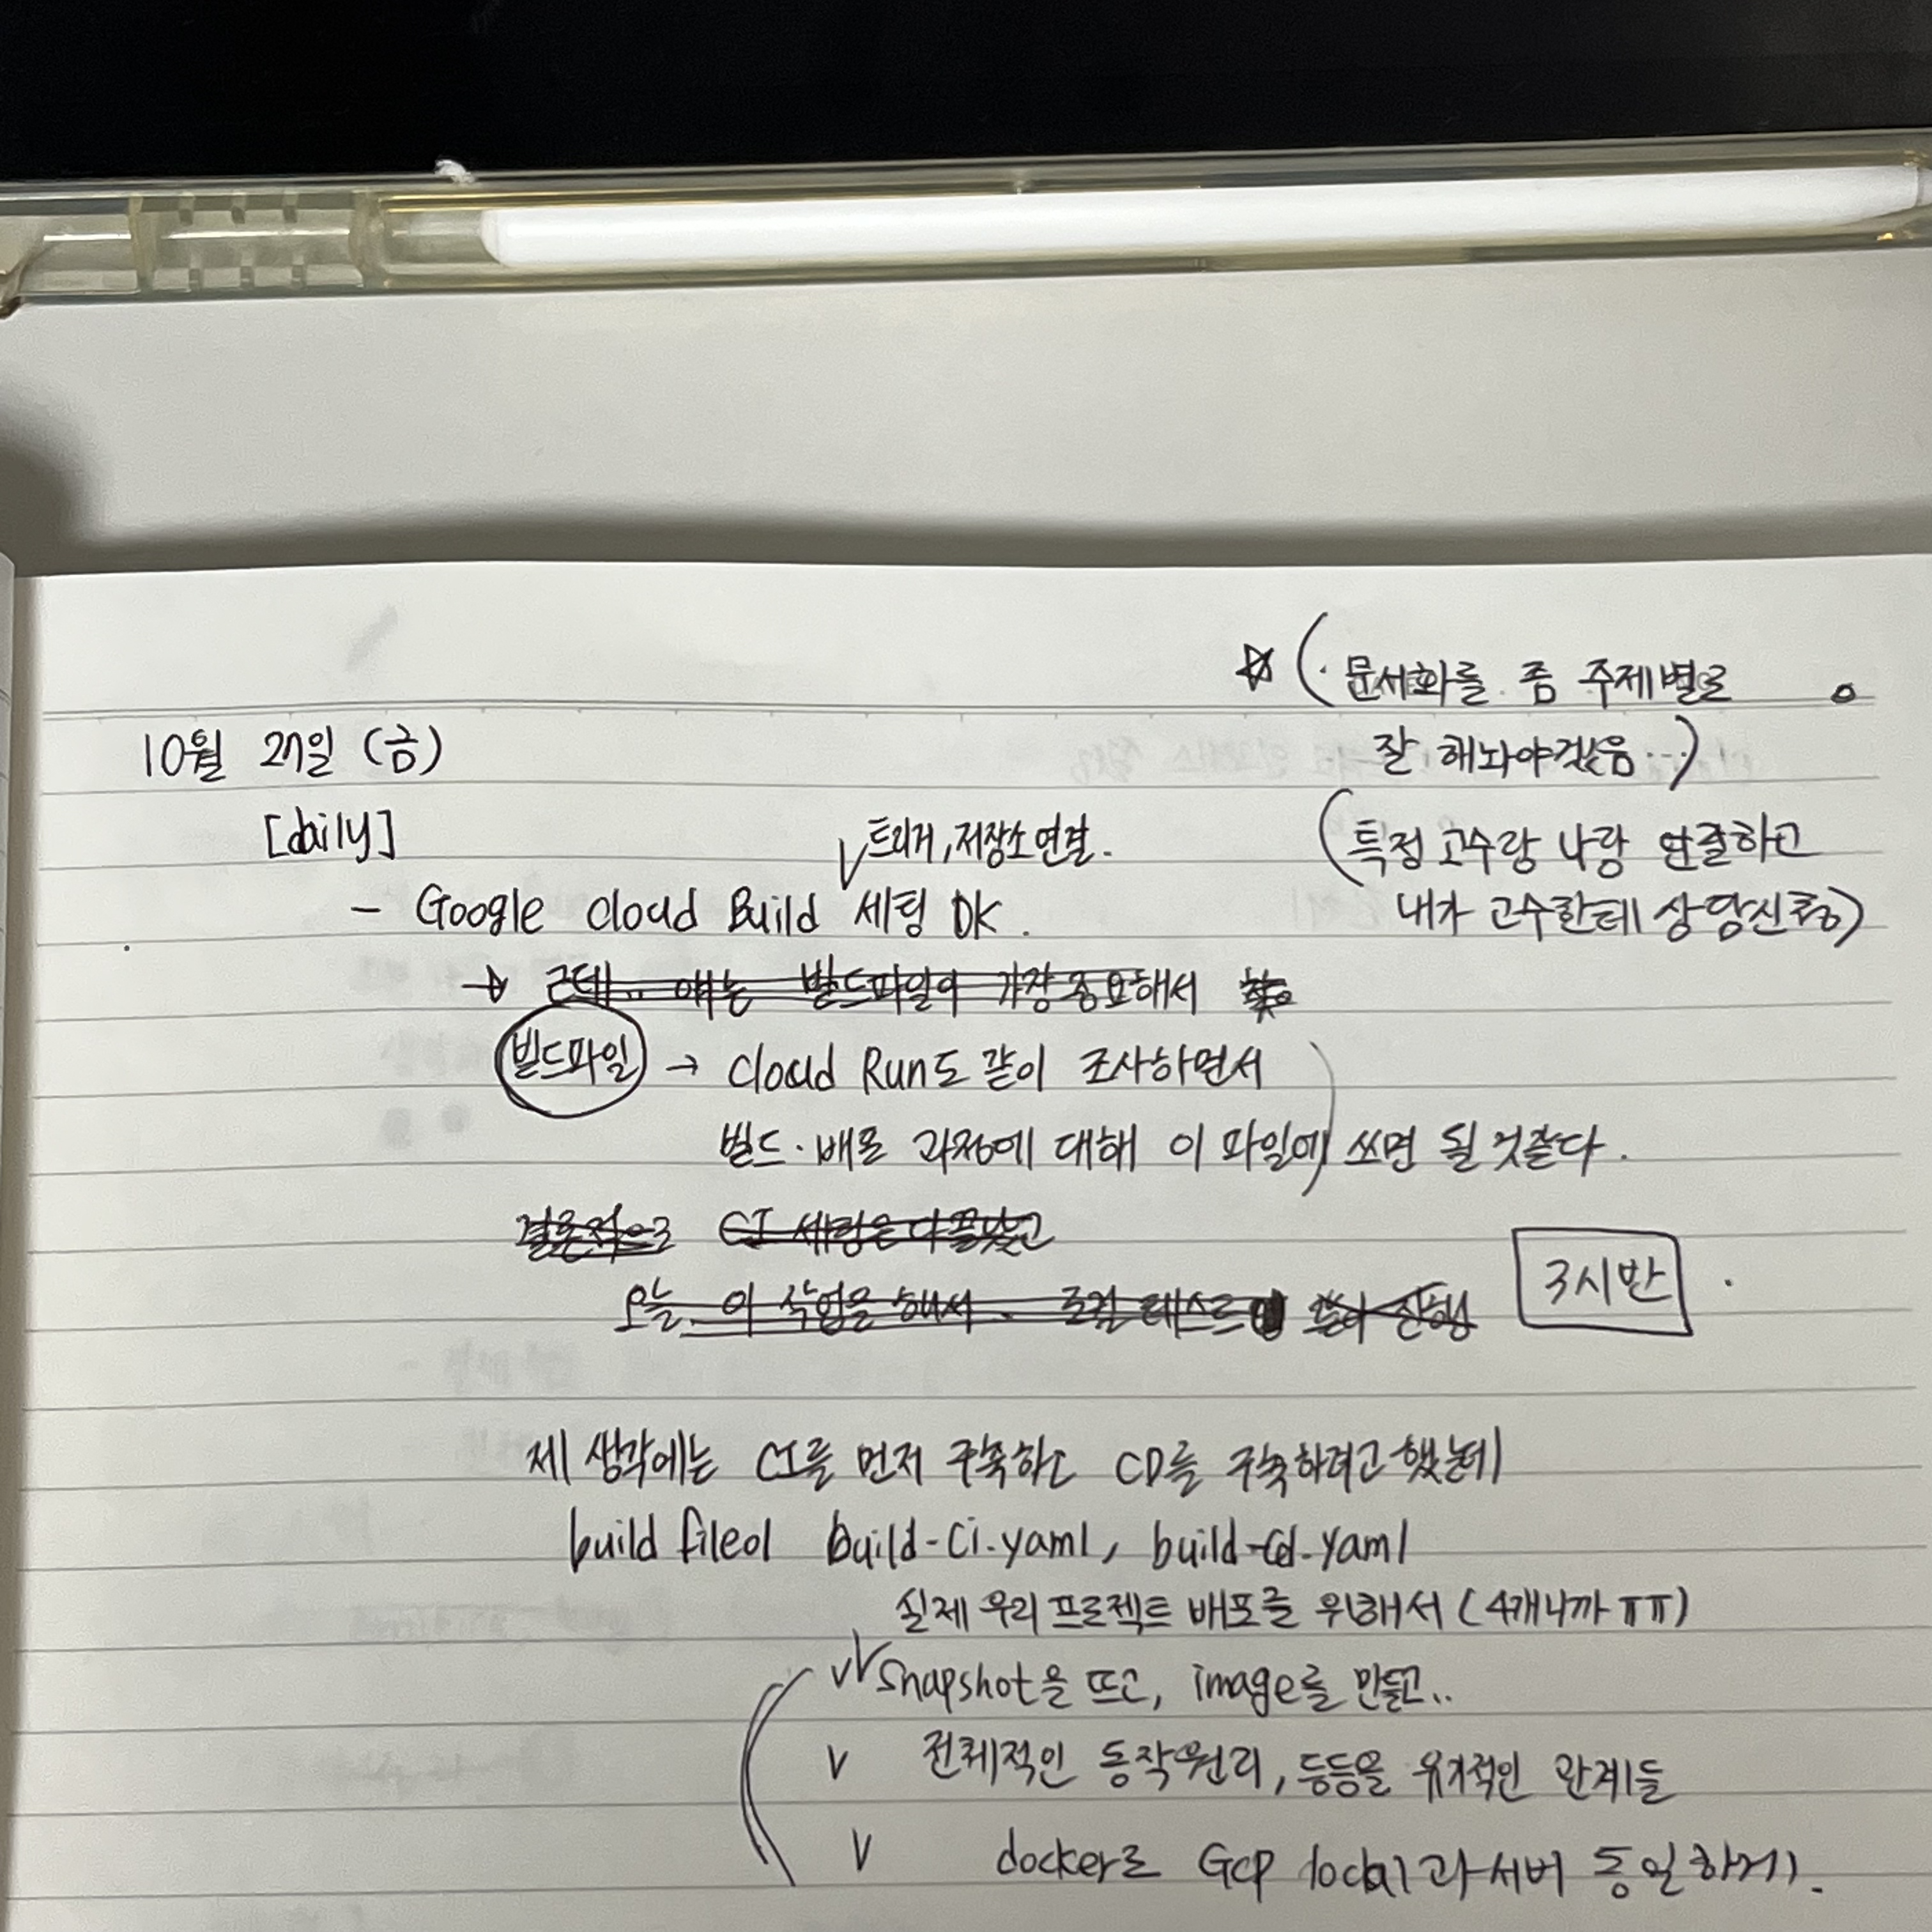 ☆ (· 문서화를 좀 주제별로
잘 해놔야겠음...)
10월 27일 (금)
[daily]
트리거, 저장소 연결.
(특정 고수랑 나랑 연결하고
내가 고수한테 상당신청)
- Google Cloud Build 세팅 OK.
→ 근데.. 얘는 빌드파일이 가장 중요해서
빌드파일 → Cloud Run도 같이 조사하면서
빌드·배포 과정에 대해 이 파일에 쓰면 될 것 같다.
결론적으로 CI 세팅은 다 끝났고
오늘 이 작업을 해서 로컬 테스트 진행
3시반
제 생각에는 CI를 먼저 구축하고 CD를 구축하려고 했는데
build file이 build-ci.yaml, build-cd.yaml
실제 우리 프로젝트 배포를 위해서 (4개니까 ㅠㅠ)
V Snapshot을 뜨고, image를 만들고..
V 전체적인 동작원리, 등등을 유기적인 관계들
V docker로 GCP local과 서버 동일하게.